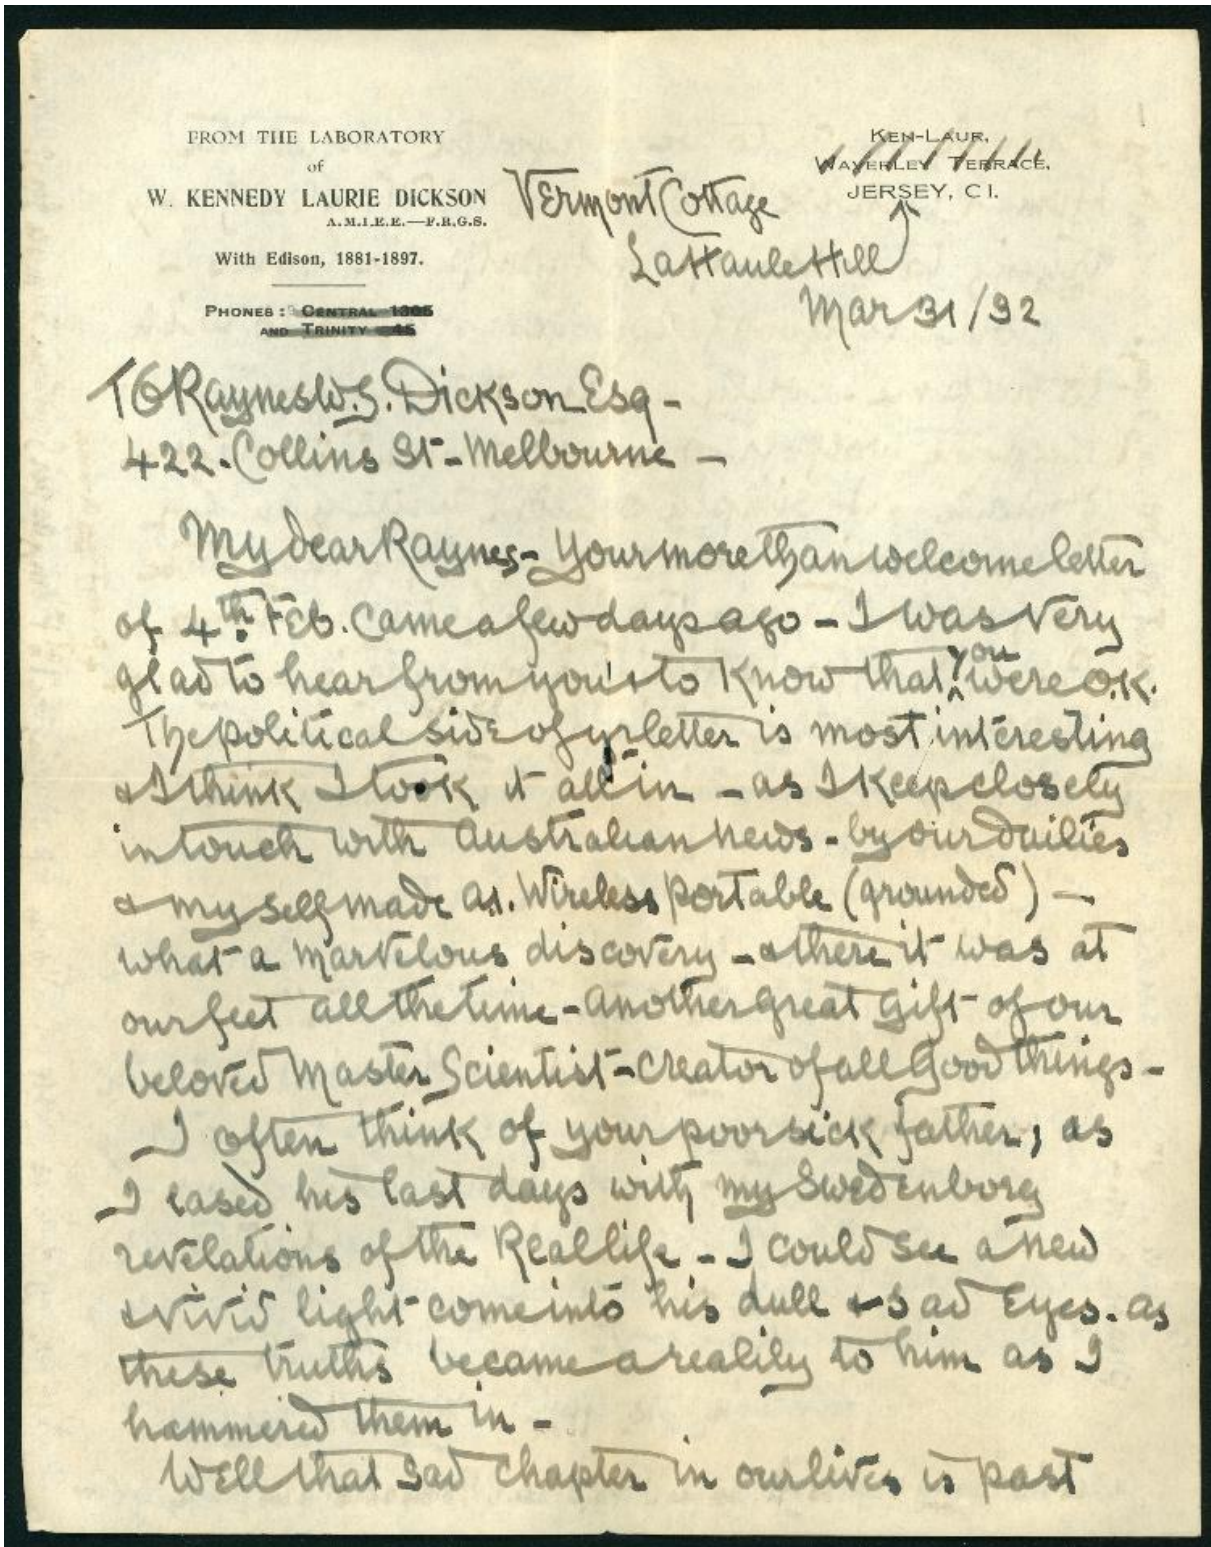 FROM THE LABORATORY
of
W. KENNEDY LAURIE DICKSON
A.M.I.E.E.—F.R.G.S.
With Edison, 1881-1897.
PHONES: CENTRAL 1305
AND TRINITY 45
KEN-LAUR,
WAVERLEY TERRACE,
JERSEY, C I.
Vermont Cottage
La Haule Hill
Mar 31/32
To Raynes W. S. Dickson Esq -
422 - Collins St - Melbourne -
My dear Raynes - Your more than welcome letter
of 4th Feb. came a few days ago - I was very
glad to hear from you & to know that you were O.K.
The political side of yr letter is most interesting
& I think I took it all in - as I keep closely
in touch with Australian news - by our dailies
& my self made A1. Wireless portable (grounded) -
what a marvelous discovery - & there it was at
our feet all the time - another great gift of our
beloved Master Scientist - Creator of all Good things -
I often think of your poor sick father, as
I eased his last days with my Swedenborg
revelations of the Real life - I could see a new
& vivid light come into his dull & sad Eyes. as
these truths became a reality to him as I
hammered them in -
Well that sad chapter in our lives is past